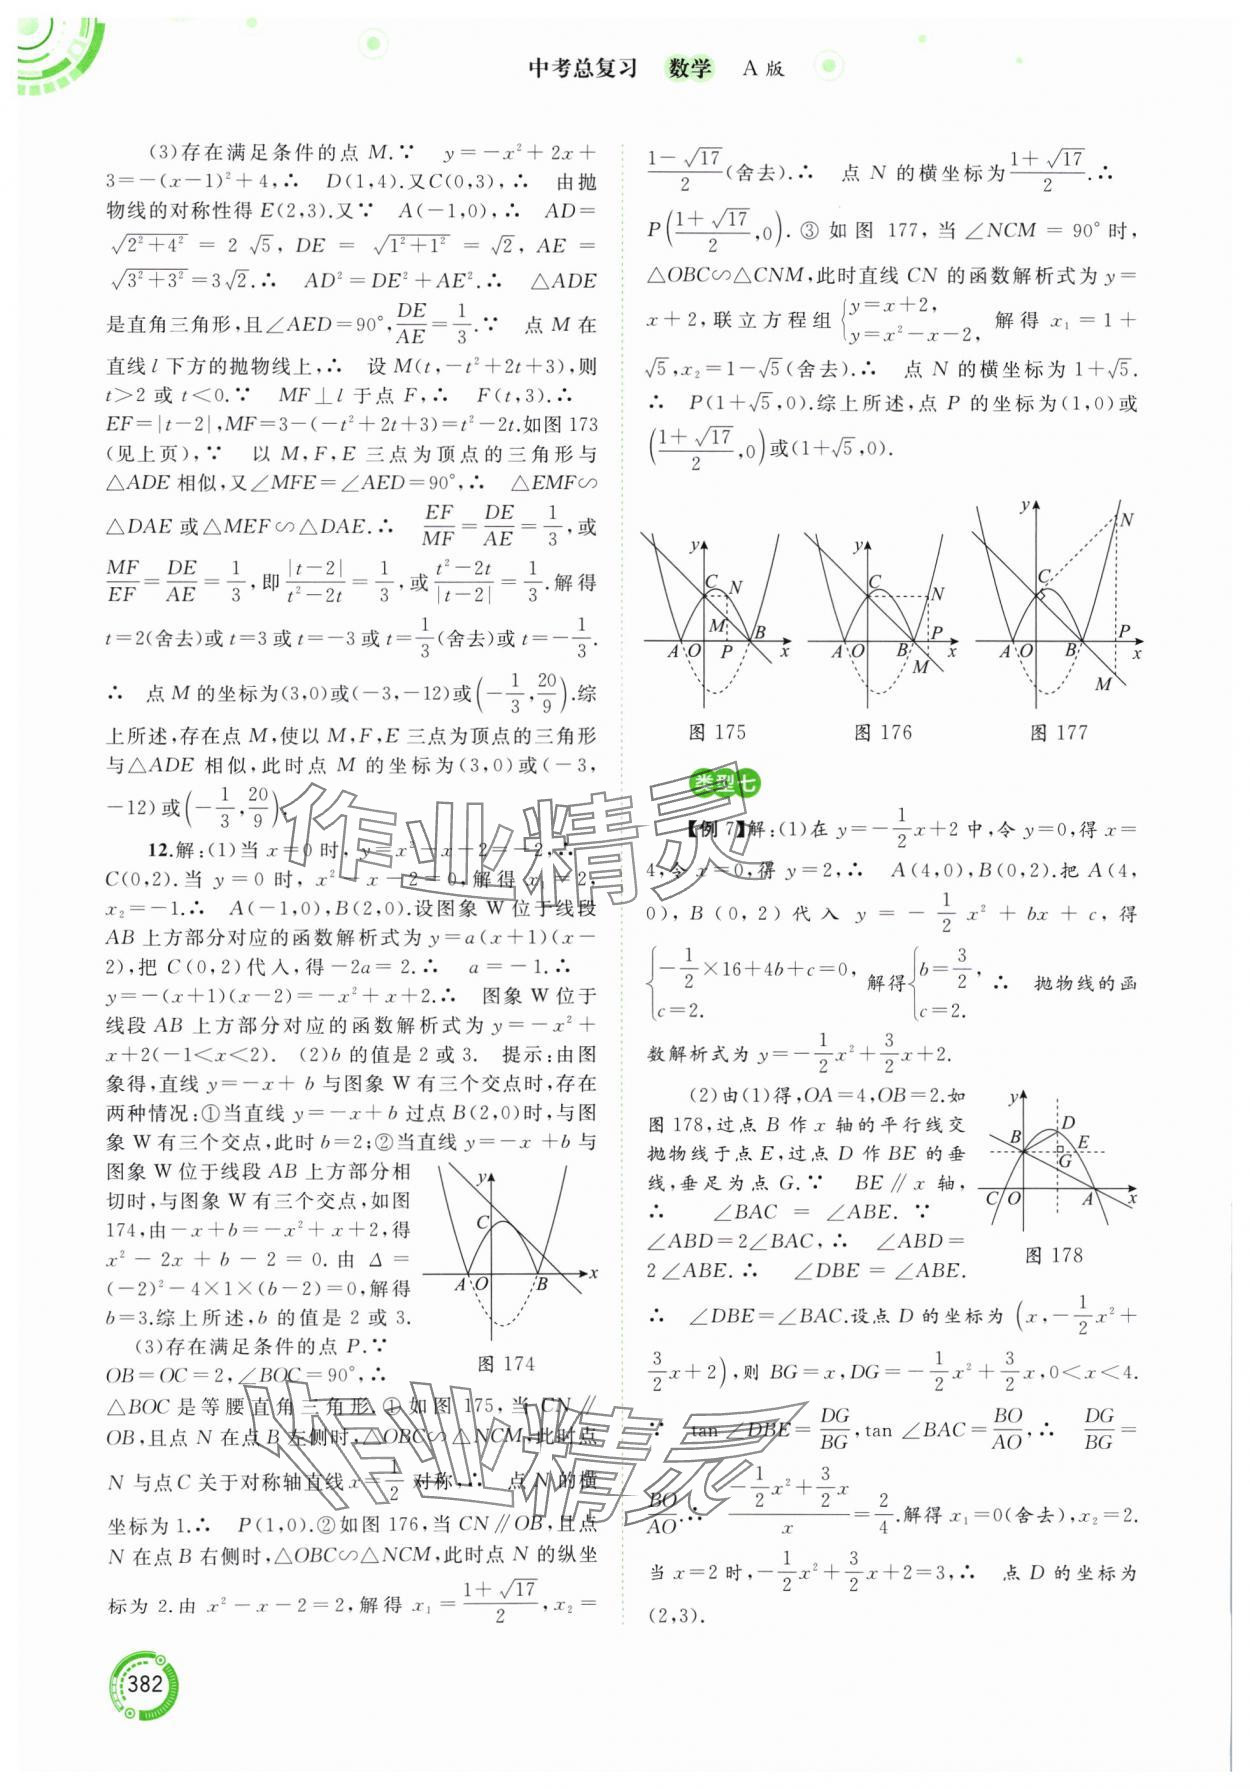 中考总复习 数学 A 版
(3)存在满足条件的点 M.∵ y=-x²+2x+
3=-(x-1)²+4,∴ D(1,4).又C(0,3),∴ 由抛
物线的对称性得 E(2,3).又∵ A(-1,0),∴ AD=
√(2²+4²) = 2√5, DE = √(1²+1²) = √2, AE =
√(3²+3²)=3√2.∴ AD²=DE²+AE².∴ △ADE
是直角三角形,且∠AED=90°,DE/AE=1/3.∵ 点 M 在
直线 l 下方的抛物线上,∴ 设 M(t,-t²+2t+3),则
t>2 或 t<0.∵ MF⊥l 于点 F,∴ F(t,3).∴
EF=|t-2|,MF=3-(-t²+2t+3)=t²-2t.如图 173
(见上页),∵ 以 M,F,E 三点为顶点的三角形与
△ADE 相似,又∠MFE=∠AED=90°,∴ △EMF∽
△DAE 或△MEF∽△DAE.∴ EF/MF=DE/AE=1/3,或
MF/EF=DE/AE=1/3,即|t-2|/(t²-2t)=1/3,或(t²-2t)/|t-2|=1/3.解得
t=2(舍去)或 t=3 或 t=-3 或 t=1/3(舍去)或 t=-1/3.
∴ 点 M 的坐标为(3,0)或(-3,-12)或(-1/3,20/9).综
上所述,存在点 M,使以 M,F,E 三点为顶点的三角形
与△ADE 相似,此时点 M 的坐标为(3,0)或(-3,
-12)或(-1/3,20/9).
12.解:(1)当 x=0 时,y=x²-x-2=-2,∴
C(0,2).当 y=0 时,x²-x-2=0,解得 x₁=2,
x₂=-1.∴ A(-1,0),B(2,0).设图象 W 位于线段
AB 上方部分对应的函数解析式为 y=a(x+1)(x-
2),把 C(0,2)代入,得-2a=2.∴ a=-1.∴
y=-(x+1)(x-2)=-x²+x+2.∴ 图象 W 位于
线段 AB 上方部分对应的函数解析式为 y=-x²+
x+2(-1<x<2). (2)b 的值是 2 或 3. 提示:由图
象得,直线 y=-x+b 与图象 W 有三个交点时,存在
两种情况:①当直线 y=-x+b 过点 B(2,0)时,与图
象 W 有三个交点,此时 b=2;②当直线 y=-x+b 与
图象 W 位于线段 AB 上方部分相
切时,与图象 W 有三个交点,如图
174,由-x+b=-x²+x+2,得
x²-2x+b-2=0.由 Δ=
(-2)²-4×1×(b-2)=0,解得
b=3.综上所述,b 的值是 2 或 3.
y
C
A O B x
图 174
(3)存在满足条件的点 P.∵
OB=OC=2,∠BOC=90°,∴
△BOC 是等腰直角三角形.①如图 175,当 CN∥
OB,且点 N 在点 B 左侧时,△OBC∽△NCM,此时点
N 与点 C 关于对称轴直线 x=1/2 对称,∴ 点 N 的横
坐标为 1.∴ P(1,0).②如图 176,当 CN∥OB,且点
N 在点 B 右侧时,△OBC∽△NCM,此时点 N 的纵坐
标为 2.由 x²-x-2=2,解得 x₁=(1+√17)/2,x₂=
(1-√17)/2(舍去).∴ 点 N 的横坐标为(1+√17)/2.∴
P((1+√17)/2,0).③如图 177,当∠NCM=90°时,
△OBC∽△CNM,此时直线 CN 的函数解析式为 y=
x+2,联立方程组{y=x+2, y=x²-x-2, 解得 x₁=1+
√5,x₂=1-√5(舍去).∴ 点 N 的横坐标为 1+√5.
∴ P(1+√5,0).综上所述,点 P 的坐标为(1,0)或
((1+√17)/2,0)或(1+√5,0).
y C N M B A O P x
图 175
y C N P A O B M x
图 176
y N C P A O B x M
图 177
类型七
【例 7】解:(1)在 y=-1/2x+2 中,令 y=0,得 x=
4,令 x=0,得 y=2,∴ A(4,0),B(0,2).把 A(4,
0),B(0,2)代入 y=-1/2x²+bx+c,得
{-1/2×16+4b+c=0, c=2. 解得{b=3/2, c=2. ∴ 抛物线的函
数解析式为 y=-1/2x²+3/2x+2.
(2)由(1)得,OA=4,OB=2.如
图 178,过点 B 作 x 轴的平行线交
抛物线于点 E,过点 D 作 BE 的垂
线,垂足为点 G.∵ BE∥x 轴,
∴ ∠BAC=∠ABE.∵
∠ABD=2∠BAC,∴ ∠ABD=
2∠ABE.∴ ∠DBE=∠ABE.
y B D E G C O A x
图 178
∴ ∠DBE=∠BAC.设点 D 的坐标为(x,-1/2x²+
3/2x+2),则 BG=x,DG=-1/2x²+3/2x,0<x<4.
∵ tan∠DBE=DG/BG,tan∠BAC=BO/AO,∴ DG/BG=
BO/AO.∴ (-1/2x²+3/2x)/x=2/4.解得 x₁=0(舍去),x₂=2.
当 x=2 时,-1/2x²+3/2x+2=3,∴ 点 D 的坐标为
(2,3).
作业精灵
作业精灵
382